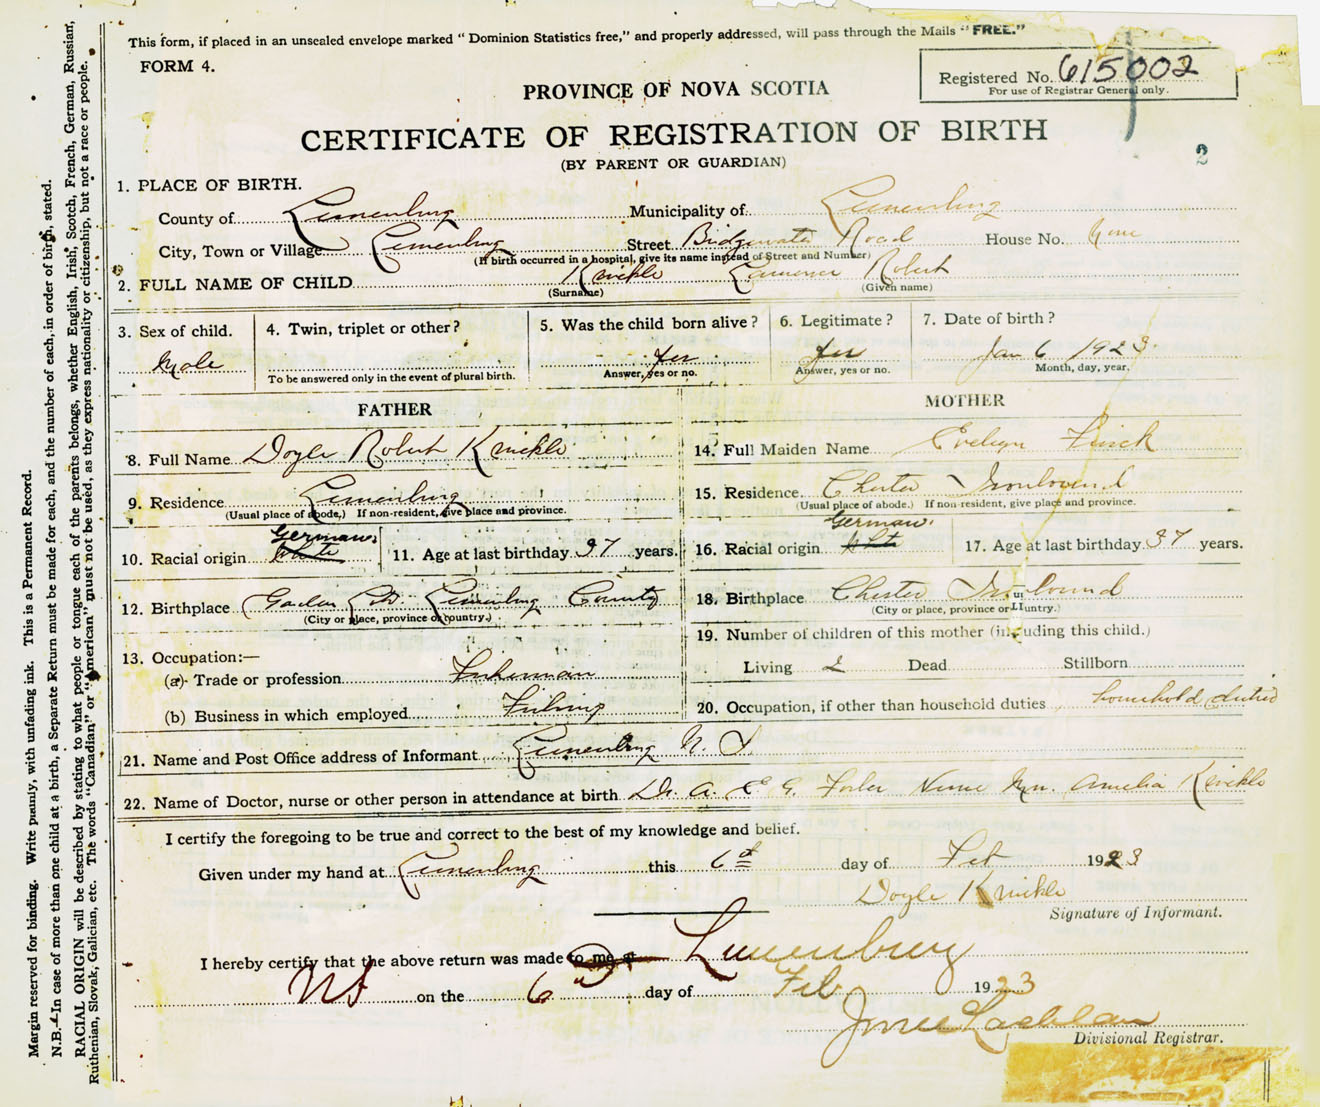 This form, if placed in an unsealed envelope marked " Dominion Statistics free," and properly addressed, will pass through the Mails " FREE."
FORM 4.
Registered No. 615002
For use of Registrar General only.
PROVINCE OF NOVA SCOTIA
CERTIFICATE OF REGISTRATION OF BIRTH
(BY PARENT OR GUARDIAN)
2
1. PLACE OF BIRTH.
County of Lunenburg Municipality of Lunenburg
City, Town or Village Lunenburg Street Bridgewater Road House No. None
(If birth occurred in a hospital, give its name instead of Street and Number)
2. FULL NAME OF CHILD Knickle Cameron Robert
(Surname) (Given name)
3. Sex of child. 4. Twin, triplet or other? 5. Was the child born alive? 6. Legitimate? 7. Date of birth?
Male yes yes Jan 6 1923
To be answered only in the event of plural birth. Answer, yes or no. Answer, yes or no. Month, day, year.
FATHER
8. Full Name Doyle Robert Knickle
9. Residence Lunenburg
(Usual place of abode.) If non-resident, give place and province.
German.
10. Racial origin White 11. Age at last birthday 37 years.
12. Birthplace Lunenburg County
(City or place, province or country.)
13. Occupation:—
(a) Trade or profession Fisherman
(b) Business in which employed Fishing
MOTHER
14. Full Maiden Name Evelyn
15. Residence Chester
(Usual place of abode.) If non-resident, give place and province.
German.
16. Racial origin 17. Age at last birthday 37 years.
18. Birthplace Chester
(City or place, province or country.)
19. Number of children of this mother (including this child.)
Living 2 Dead Stillborn
20. Occupation, if other than household duties household duties
21. Name and Post Office address of Informant Lunenburg N. S
22. Name of Doctor, nurse or other person in attendance at birth Dr. A. E. G. Forbes Nurse Mrs. Amelia Knickle
I certify the foregoing to be true and correct to the best of my knowledge and belief.
Given under my hand at Lunenburg this 6th day of Feb 1923
Doyle Knickle
Signature of Informant.
I hereby certify that the above return was made to me at Lunenburg
NS on the 6th day of Feb 1923
Divisional Registrar.
Margin reserved for binding. Write plainly, with unfading ink. This is a Permanent Record.
N.B.—In case of more than one child at a birth, a Separate Return must be made for each, and the number of each, in order of birth, stated.
RACIAL ORIGIN will be described by stating to what people or tongue each of the parents belongs, whether English, Irish, Scotch, French, German, Russian,
Ruthenian, Slovak, Galician, etc. The words "Canadian" or "American" must not be used, as they express nationality or citizenship, but not a race or people.